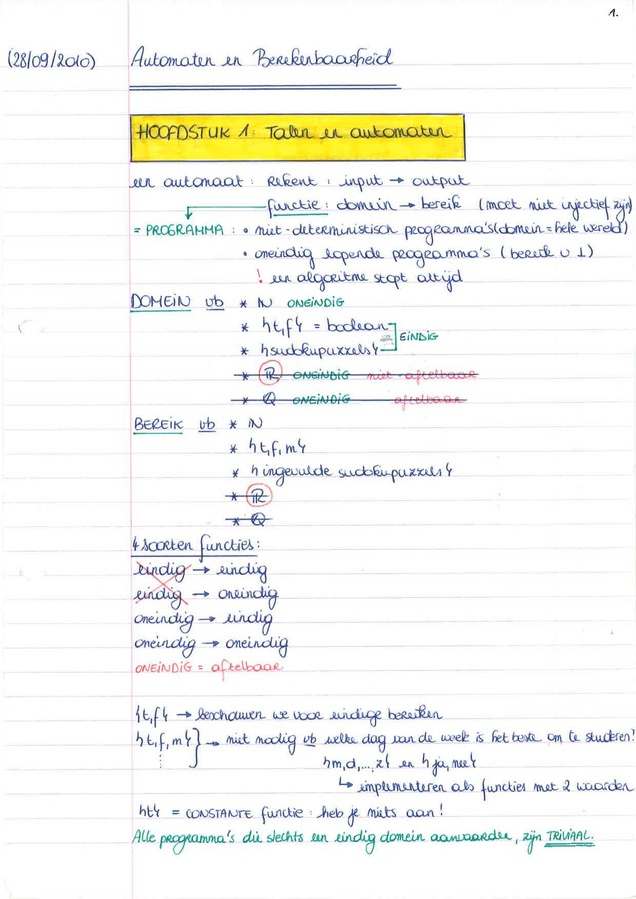 1.
(28/09/2010) Automaten en Berekenbaarheid
HOOFDSTUK 1: Talen en automaten
een automaat : Rekent : input → output
functie : domein → bereik (moet niet injectief zijn)
= PROGRAMMA : • niet-deterministisch programma's (domein = hele wereld)
• oneindig lopende programma's (bereik ∪ ⊥)
! een algoritme stopt altijd
DOMEIN vb * ℕ ONEINDIG
* {t,f} = boolean
* {sudokupuzzels} EINDIG
* ℝ ONEINDIG niet-aftelbaar
* ℚ ONEINDIG aftelbaar
BEREIK vb * ℕ
* {t,f,m}
* {ingevulde sudokupuzzels}
* ℝ
* ℚ
4 soorten functies:
eindig → eindig
eindig → oneindig
oneindig → eindig
oneindig → oneindig
ONEINDIG = aftelbaar
{t,f} → beschouwen we voor eindige bereiken
{t,f,m} } → niet nodig vb welke dag van de week is het beste om te studeren?
{m,d,...,z} en {ja,nee}
↳ implementeren als functies met 2 waarden
{t} = CONSTANTE functie : heb je niets aan!
Alle programma's die slechts een eindig domein aanvaarden, zijn TRIVIAAL.